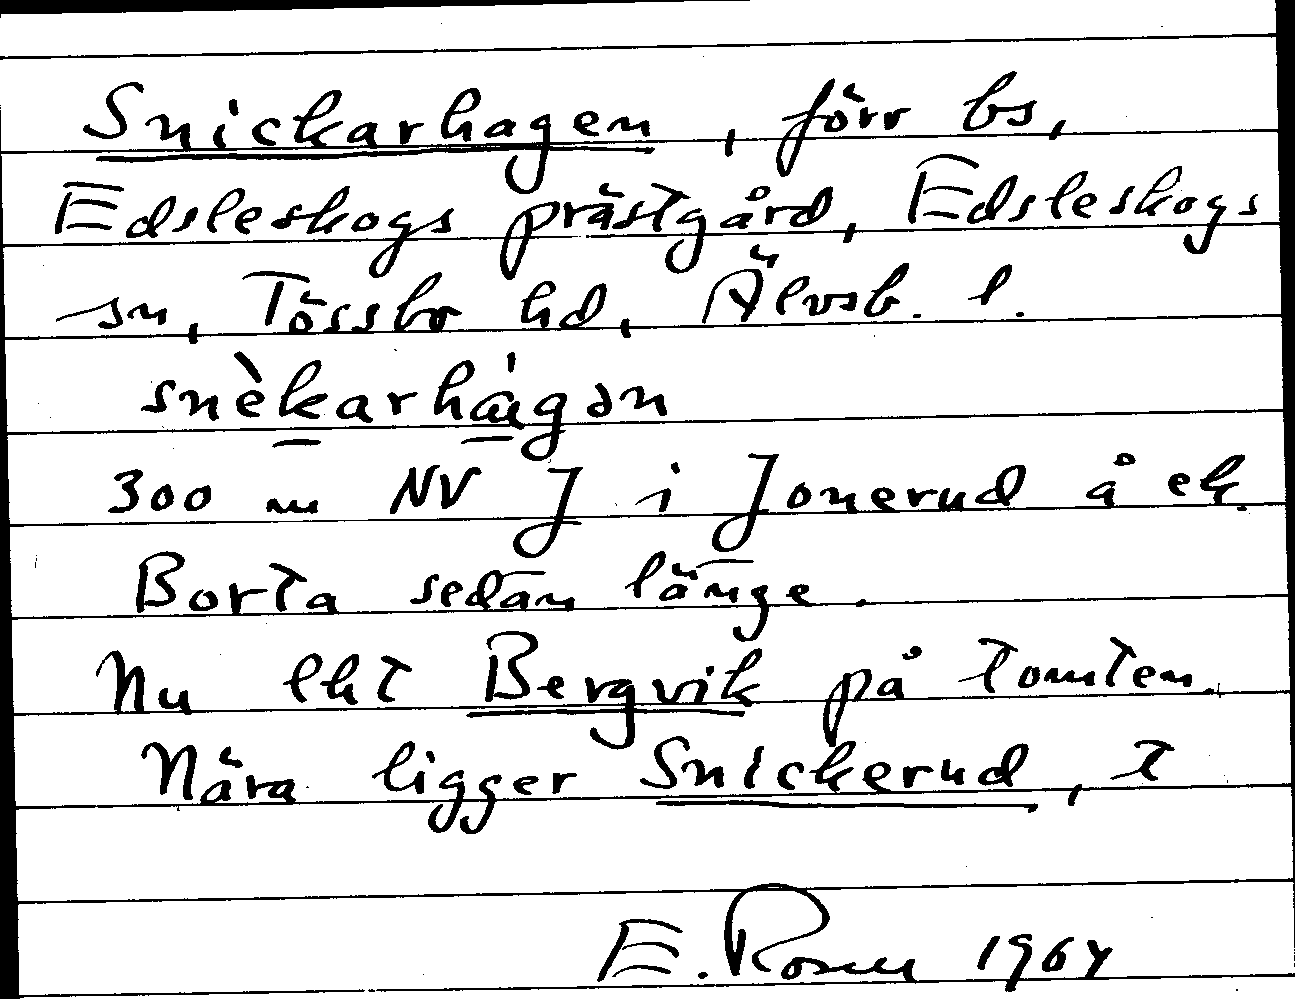 Snickarhagen, förr bs,
Edsleskogs prästgård, Edsleskogs
sn, Tössbo hd, Älvsb. l.
snèkarhágən
300 m NV J i Jonerud å ek.
Borta sedan länge.
Nu lht Bergvik på tomten.
Nära ligger Snickerud, t
E. Rosen 1964